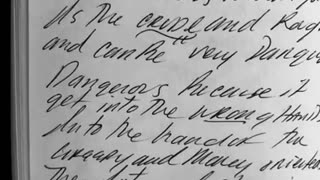 Its the crude and Rag
and can be very Dangero
Dangerous Because it
get into the wrong Hands
Into the hands of the
Greedy and Money oriented